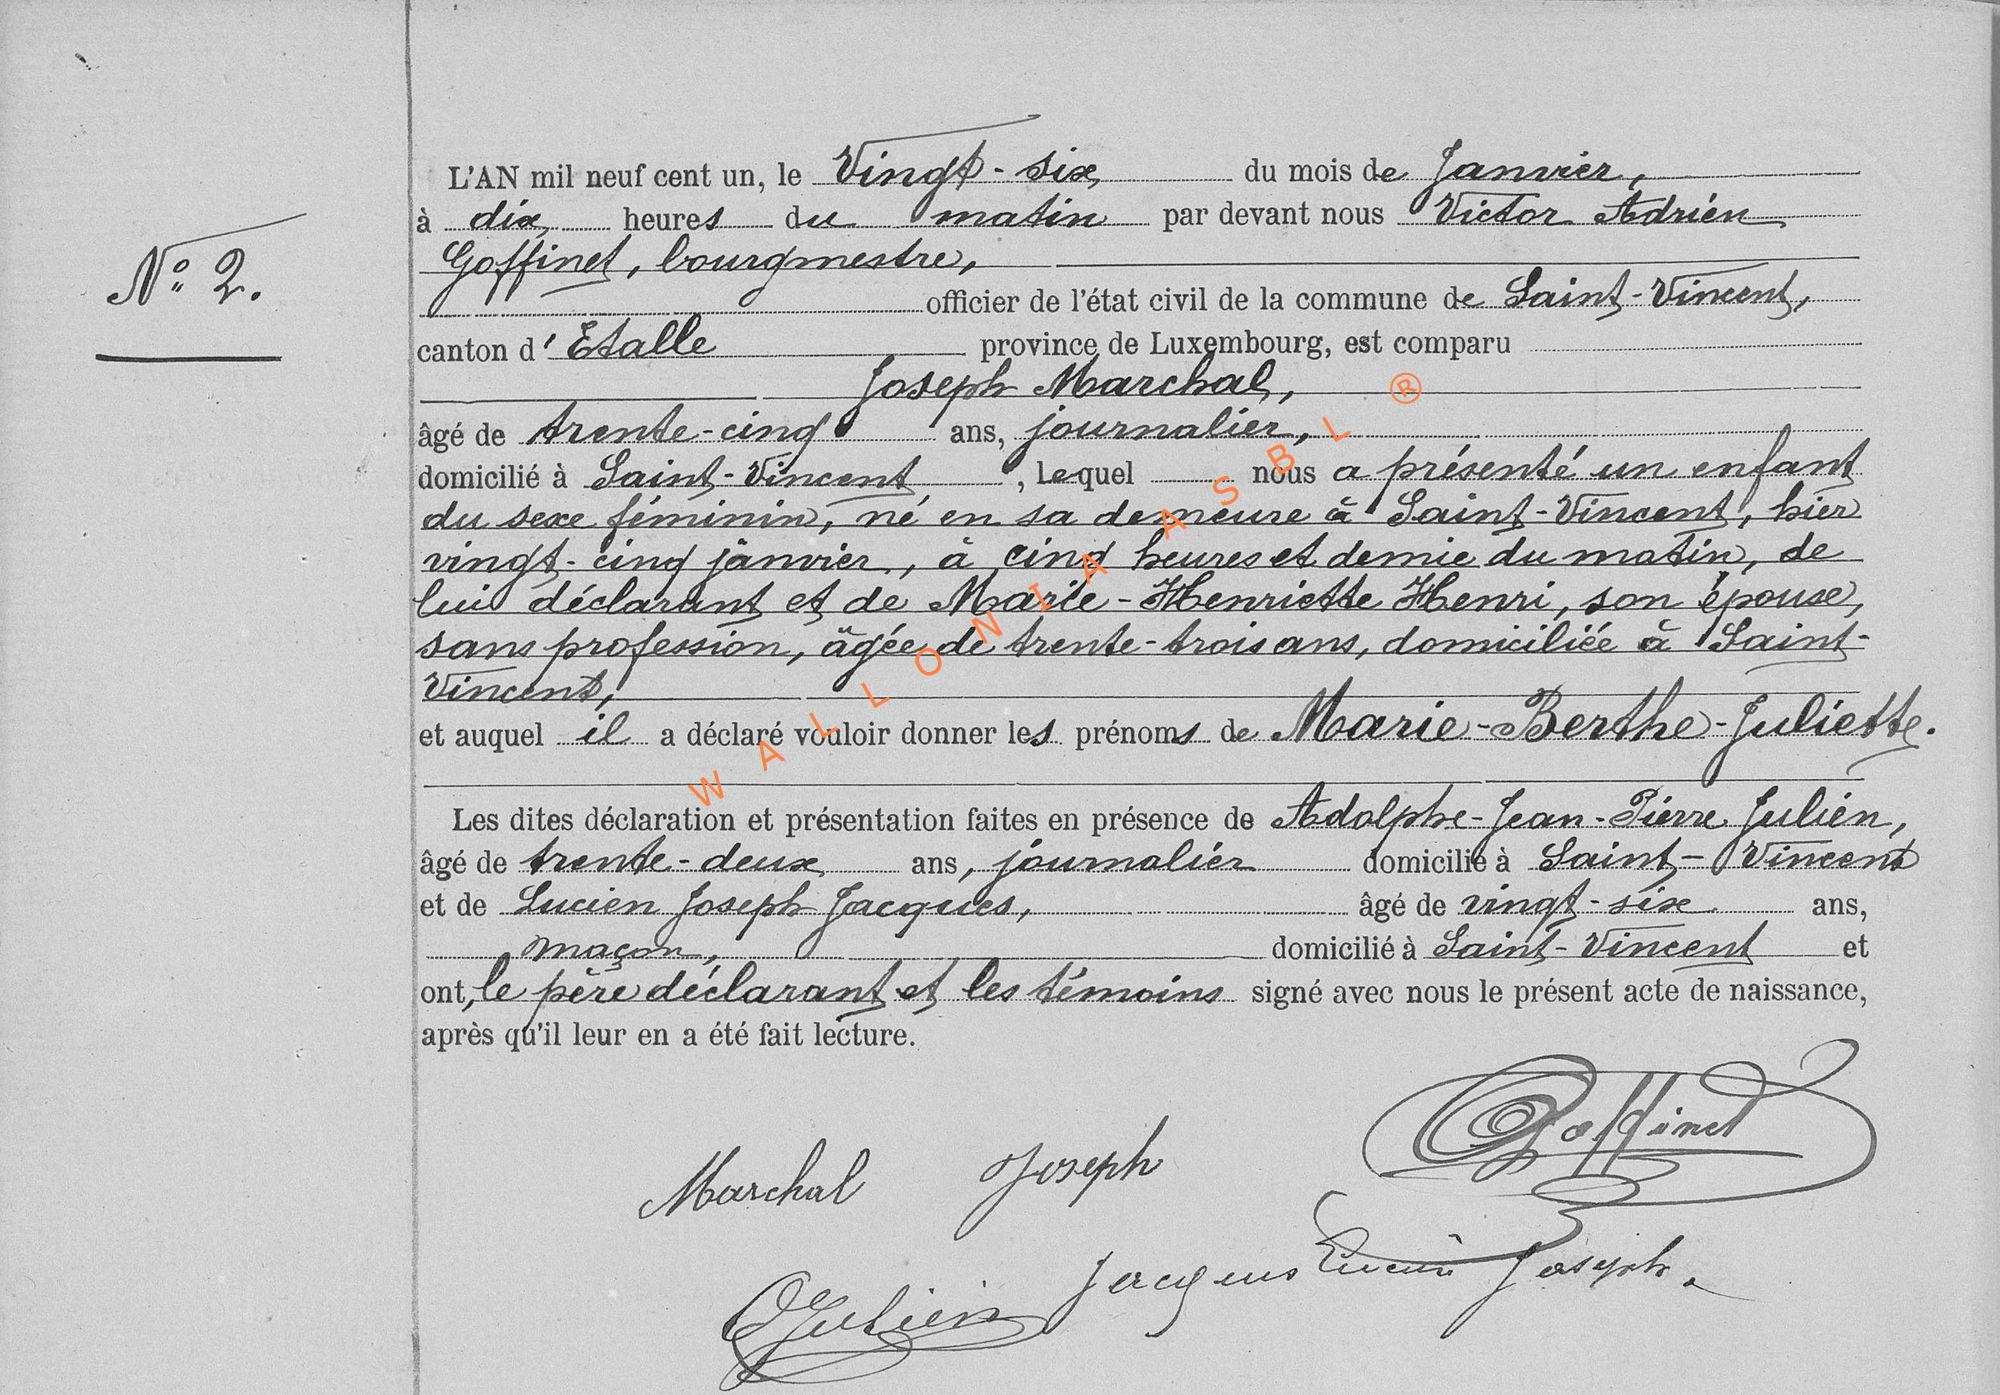 N° 2.
L'AN mil neuf cent un, le Vingt-six du mois de Janvier,
à dix heures du matin par devant nous Victor Adrien
Goffinet, bourgmestre,
officier de l'état civil de la commune de Saint-Vincent,
canton d'Etalle province de Luxembourg, est comparu
Joseph Marchal,
âgé de trente-cinq ans, journalier,
domicilié à Saint-Vincent, lequel nous a présenté un enfant
du sexe féminin, né en sa demeure à Saint-Vincent, hier
vingt-cinq janvier, à cinq heures et demie du matin, de
lui déclarant et de Marie-Henriette Henri, son épouse,
sans profession, âgée de trente-trois ans, domiciliée à Saint-
Vincent,
et auquel il a déclaré vouloir donner les prénoms de Marie-Berthe-Juliette.
Les dites déclaration et présentation faites en présence de Adolphe-Jean-Pierre Julien,
âgé de trente-deux ans, journalier domicilié à Saint-Vincent
et de Lucien Joseph Jacques, âgé de vingt-six ans,
maçon, domicilié à Saint-Vincent et
ont, le père déclarant et les témoins signé avec nous le présent acte de naissance,
après qu'il leur en a été fait lecture.
Goffinet
Marchal Joseph
Jacques Lucien Joseph.
AJulien
WALLONIA ASBL ®